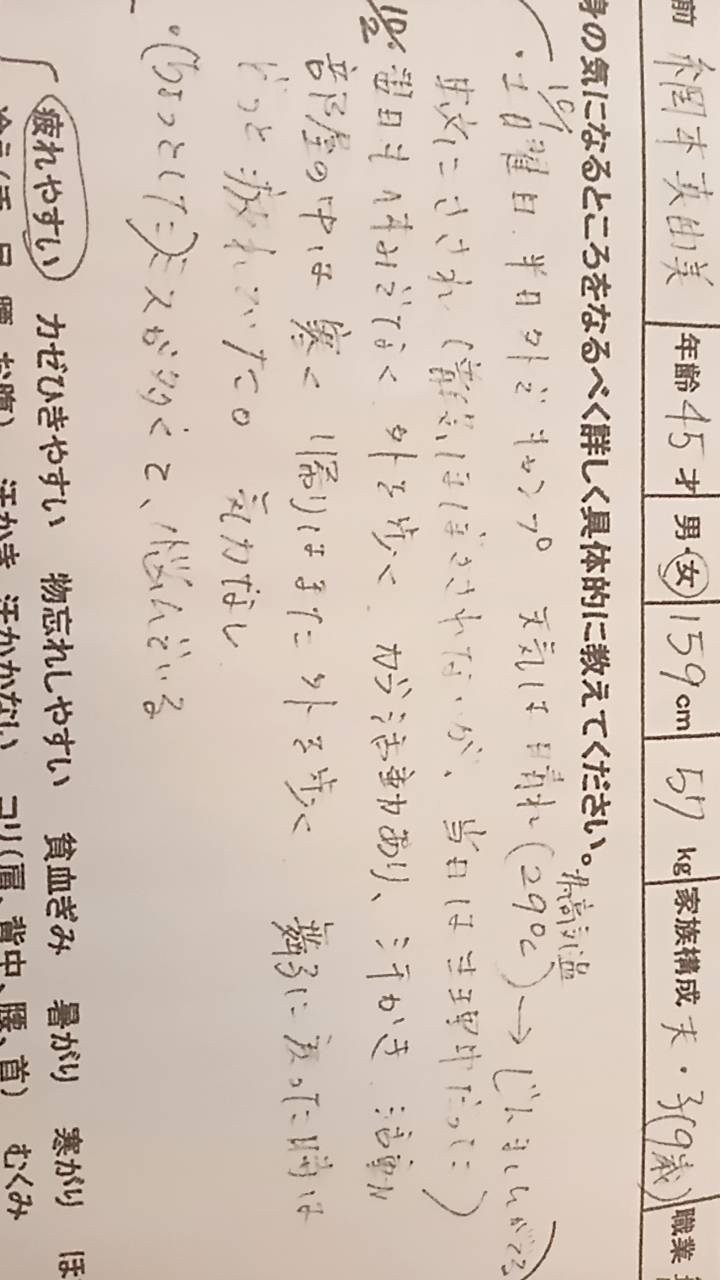 前 網本真由美 年齢 45才 男・女 159cm 57kg 家族構成 夫・子(9歳) 職業
身の気になるところをなるべく詳しく具体的に教えてください。
10/1 ・土曜日、半日外でキャンプ 天気は晴れ(29℃) 最高気温 → じんましんがでる
にさされ (普段はほぼさされないが、当日は生理中だった)
10/2 翌日も休みでなく 外を歩く ガラ活動あり、汗かき 活動
部屋の中は寒く 帰りはまた外を歩く 舞子に戻った時は
どっと疲れがでた。気力なし
・(ちょっとした)ミスが多くて、悩んでいる
疲れやすい カゼひきやすい 物忘れしやすい 貧血ぎみ 暑がり 寒がり ほ
お腹) 汗かき 汗かかない コリ(肩、背中、腰、首) むくみ